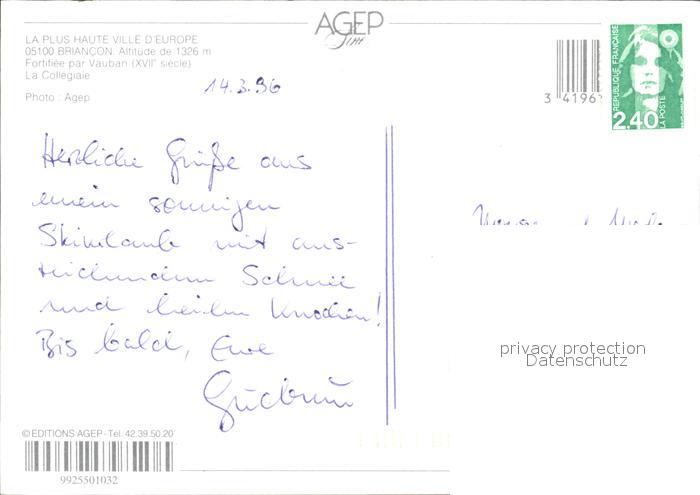 AGEP
LA PLUS HAUTE VILLE D'EUROPE
05100 BRIANCON. Altitude de 1326 m
Fortifiée par Vauban (XVII° siècle)
La Collégiale
Photo : Agep
14.3.96
3 41961
RÉPUBLIQUE FRANÇAISE
LA POSTE
2.40
Herzliche Grüße aus
einem sonnigen
Skiurlaub mit aus-
reichendem Schnee
und heilen Knochen!
Bis bald, Eure
Gudrun
privacy protection
Datenschutz
© EDITIONS AGEP - Tél. 42.39.50.20
9925501032